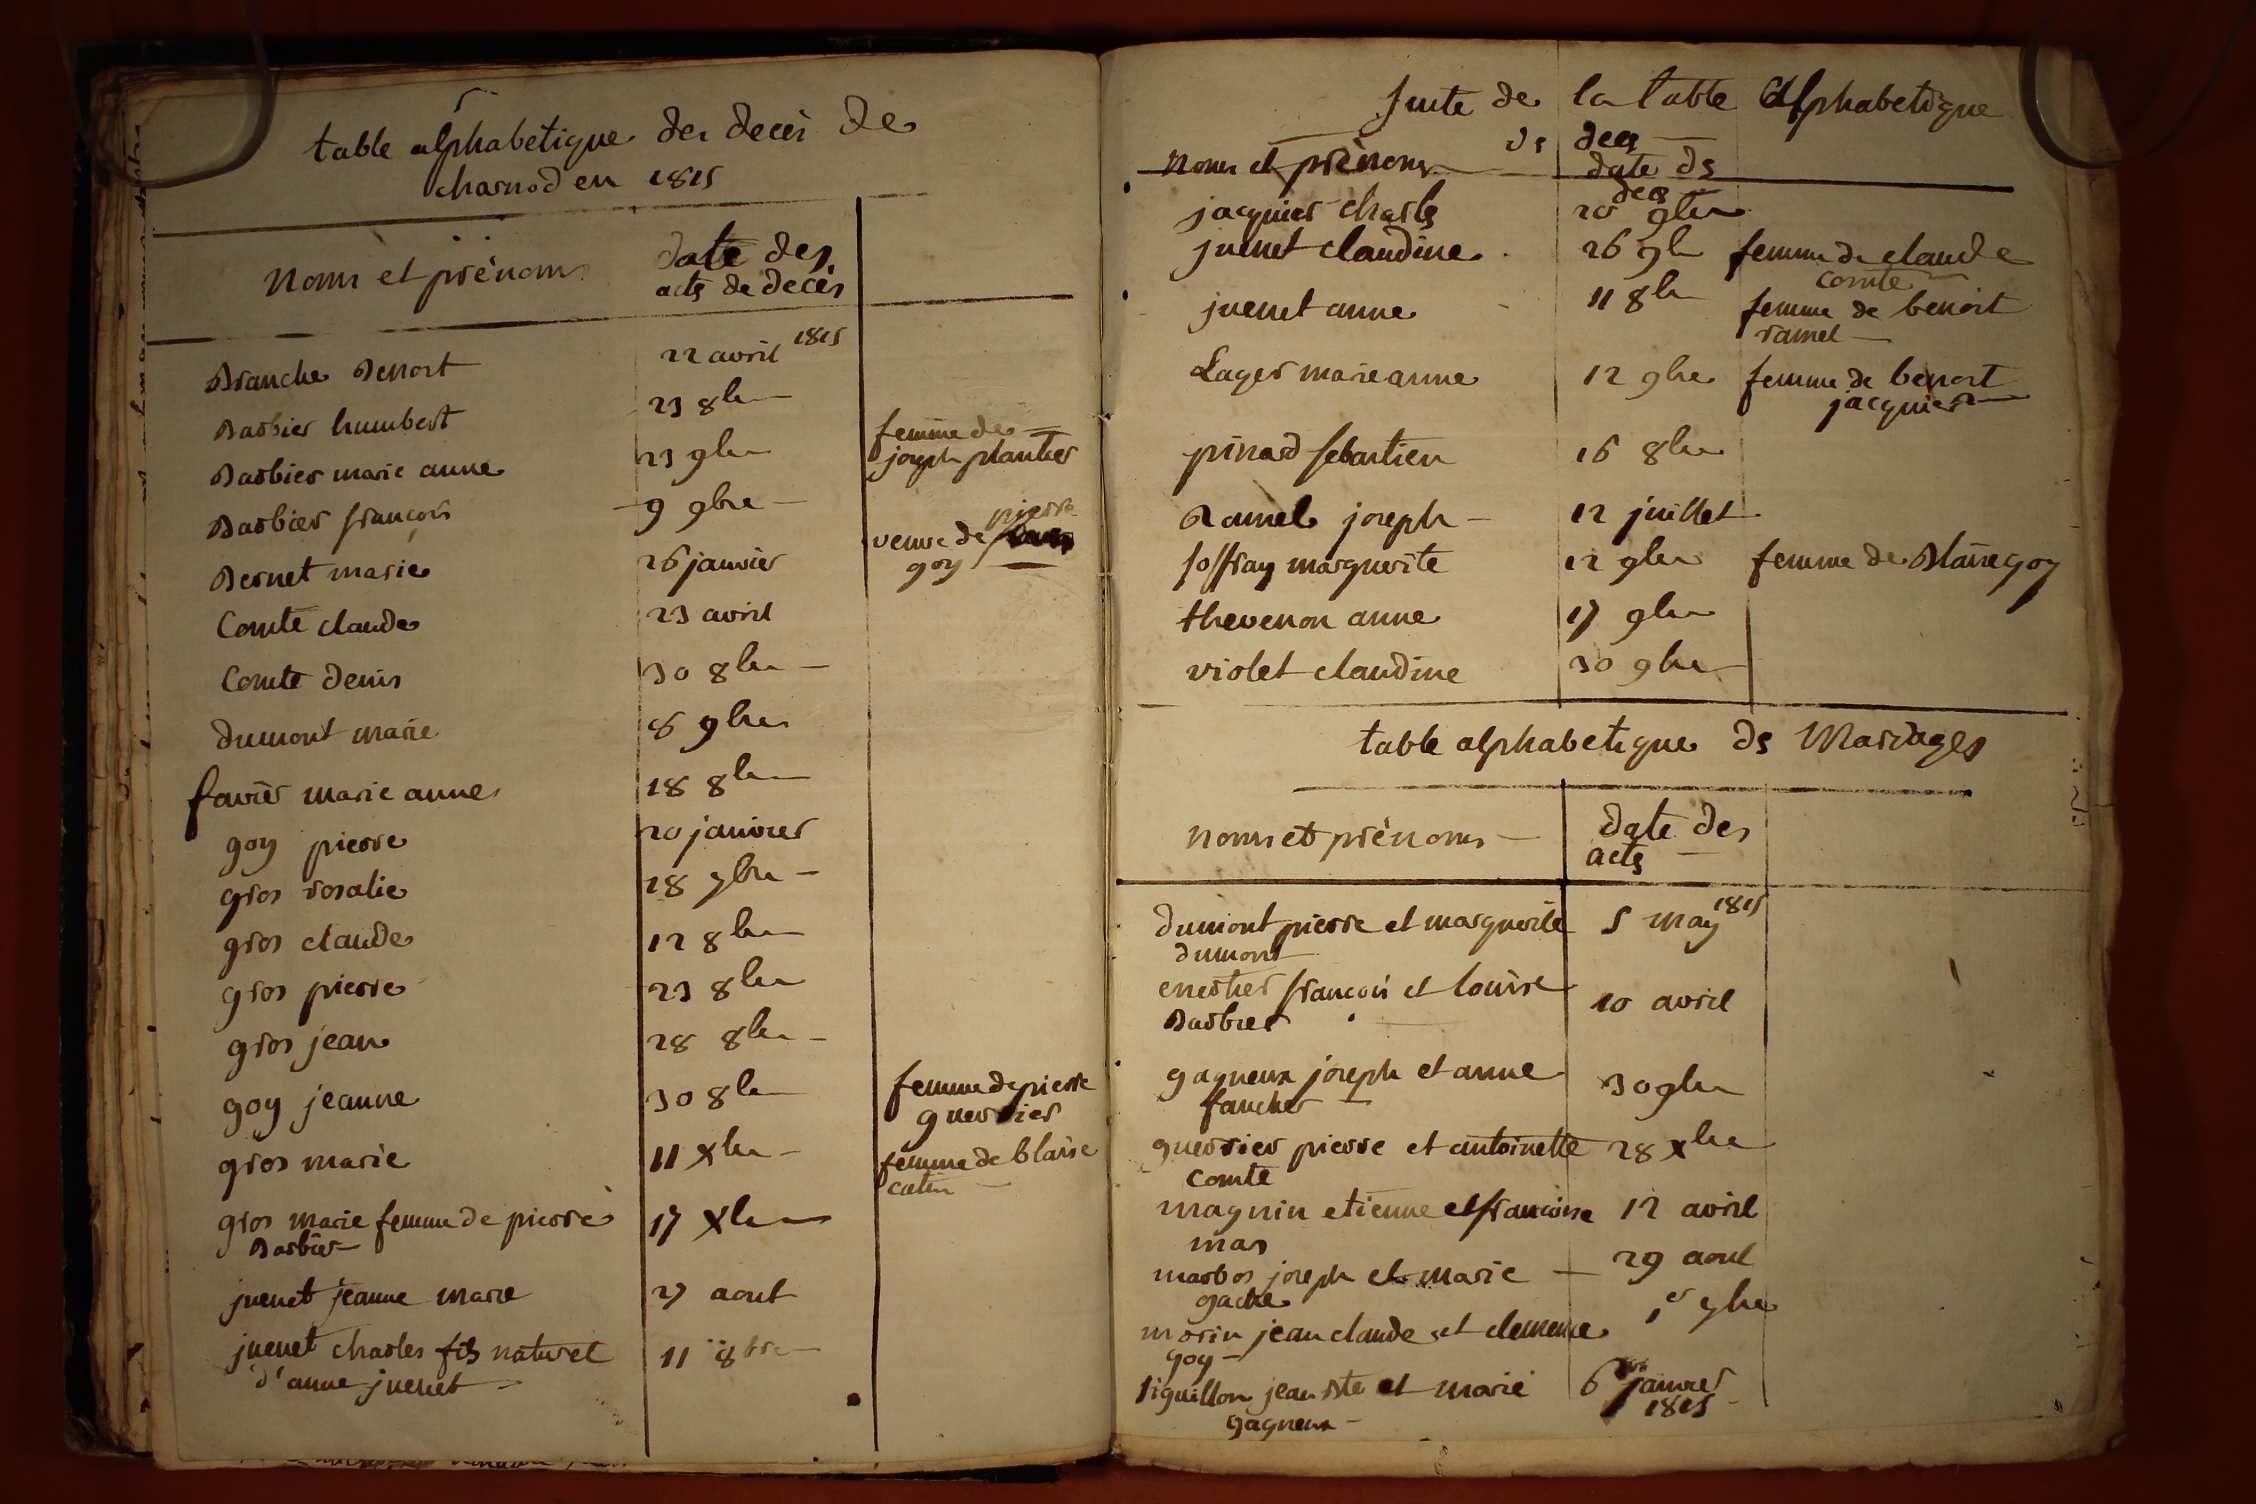 table alphabetique des deces de
charnod en 1815
noms et prénoms
date des
acts de deces
Branche Benoit 22 avril 1815
Barbier humbert 23 8bre
Barbier marie anne 23 9bre femme de
joseph plantier
Barbier françois 9 9bre
Bernet marie 26 janvier veuve de pierre
goy
Comte claude 23 avril
Comte denis 30 8bre
dumont marie 8 9bre
favier marie anne 18 8bre
goy pierre 20 janvier
gros rosalie 28 9bre
gros claude 12 8bre
gros pierre 23 8bre
gros jean 28 8bre
goy jeanne 30 8bre femme de pierre
guerrier
gros marie 11 Xbre femme de blaise
catin
gros marie femme de pierre 17 Xbre
Barbier
juenet jeanne marie 27 aout
juenet charles fils naturel 11 8bre
d'anne juenet
suite de la table alphabetique
ds deces
noms et prénoms
date ds
deces
jacquier charles 20 9bre
juenet claudine 26 9bre femme de claude
comte
juenet anne 11 8bre femme de benoit
ramel
Lager marie anne 12 9bre femme de benoit
jacquier
pinard sebastien 16 8bre
Ramel joseph 12 juillet
soffray marguerite 12 9bre femme de Blaise goy
thevenon anne 17 9bre
violet claudine 30 9bre
table alphabetique ds Mariages
noms et prénoms
date des
acts
dumont pierre et marguerite 5 may 1815
dumont
enestier françois et louise 10 avril
Barbier
gagneux joseph et anne 30 9bre
faucher
guerrier pierre et antoinette 28 Xbre
comte
magnin etienne et francoise 12 avril
mas
marbos joseph et marie 29 aout
gache
morin jean claude et clemence 1er 9bre
goy
siguillon jean Bte et marie 6 janvier
1815
gagneux